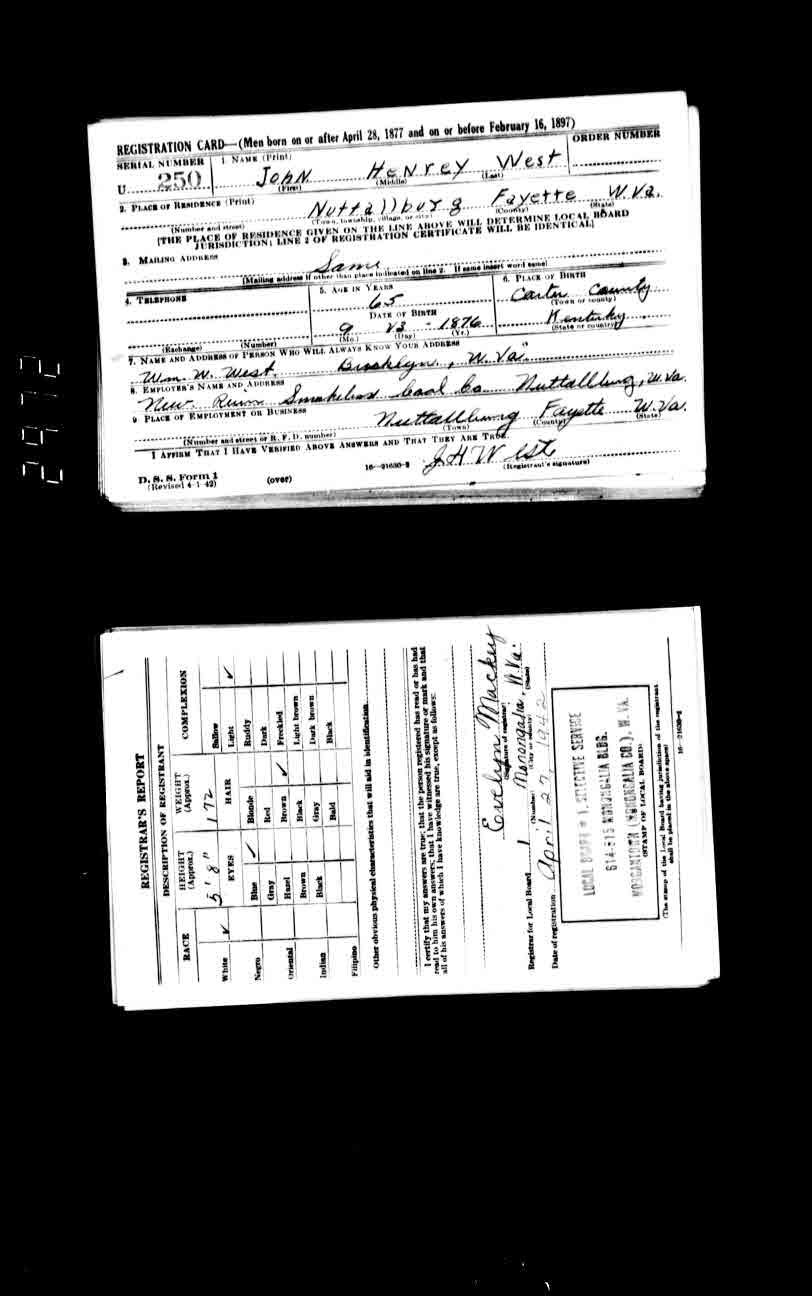 REGISTRATION CARD—(Men born on or after April 28, 1877 and on or before February 16, 1897)
SERIAL NUMBER 1. NAME (Print) ORDER NUMBER
U 250 John Henrey West
(First) (Middle) (Last)
2. PLACE OF RESIDENCE (Print)
Nuttallburg Fayette W.Va.
(Number and street) (Town, township, village, or city) (County) (State)
[THE PLACE OF RESIDENCE GIVEN ON THE LINE ABOVE WILL DETERMINE LOCAL BOARD
JURISDICTION; LINE 2 OF REGISTRATION CERTIFICATE WILL BE IDENTICAL]
3. MAILING ADDRESS
Same
(Mailing address if other than place indicated on line 2. If same insert word same)
4. TELEPHONE 5. AGE IN YEARS 6. PLACE OF BIRTH
65 Carter County
DATE OF BIRTH (Town or county)
9 23 - 1876 Kentucky
(Exchange) (Number) (Mo.) (Day) (Yr.) (State or country)
7. NAME AND ADDRESS OF PERSON WHO WILL ALWAYS KNOW YOUR ADDRESS
Wm. W. West. Brooklyn, W.Va.
8. EMPLOYER'S NAME AND ADDRESS
New River Smokeless Coal Co Nuttallburg, W.Va.
9 PLACE OF EMPLOYMENT OR BUSINESS
Nuttallburg Fayette W.Va.
(Number and street or R. F. D. number) (Town) (County) (State)
I AFFIRM THAT I HAVE VERIFIED ABOVE ANSWERS AND THAT THEY ARE TRUE.
D. S. S. Form 1
(Revised 4-1-42) (over) 16—21630-2 J H West
(Registrant's signature)
2912
REGISTRAR'S REPORT
DESCRIPTION OF REGISTRANT
RACE HEIGHT (Approx.) WEIGHT (Approx.) COMPLEXION
5' 8" 172
EYES HAIR
White ✓ Blue ✓ Blonde Sallow
Negro Gray Red Light ✓
Oriental Hazel Brown ✓ Ruddy
Indian Brown Black Dark
Filipino Black Gray Freckled
Bald Light brown
Dark brown
Black
Other obvious physical characteristics that will aid in identification
I certify that my answers are true; that the person registered has read or has had
read to him his own answers; that I have witnessed his signature or mark and that
all of his answers of which I have knowledge are true, except as follows:
Evelyn Mackey
(Signature of registrar)
Registrar for Local Board 1 Monongalia, W.Va.
(Number) (City or county) (State)
Date of registration April 27, 1942
LOCAL BOARD # 1, SELECTIVE SERVICE
614-615 MONONGALIA BLDG.
MORGANTOWN (MONONGALIA CO.), W. VA.
(STAMP OF LOCAL BOARD)
(The stamp of the Local Board having jurisdiction of the registrant
shall be placed in the above space)
16—21630-2